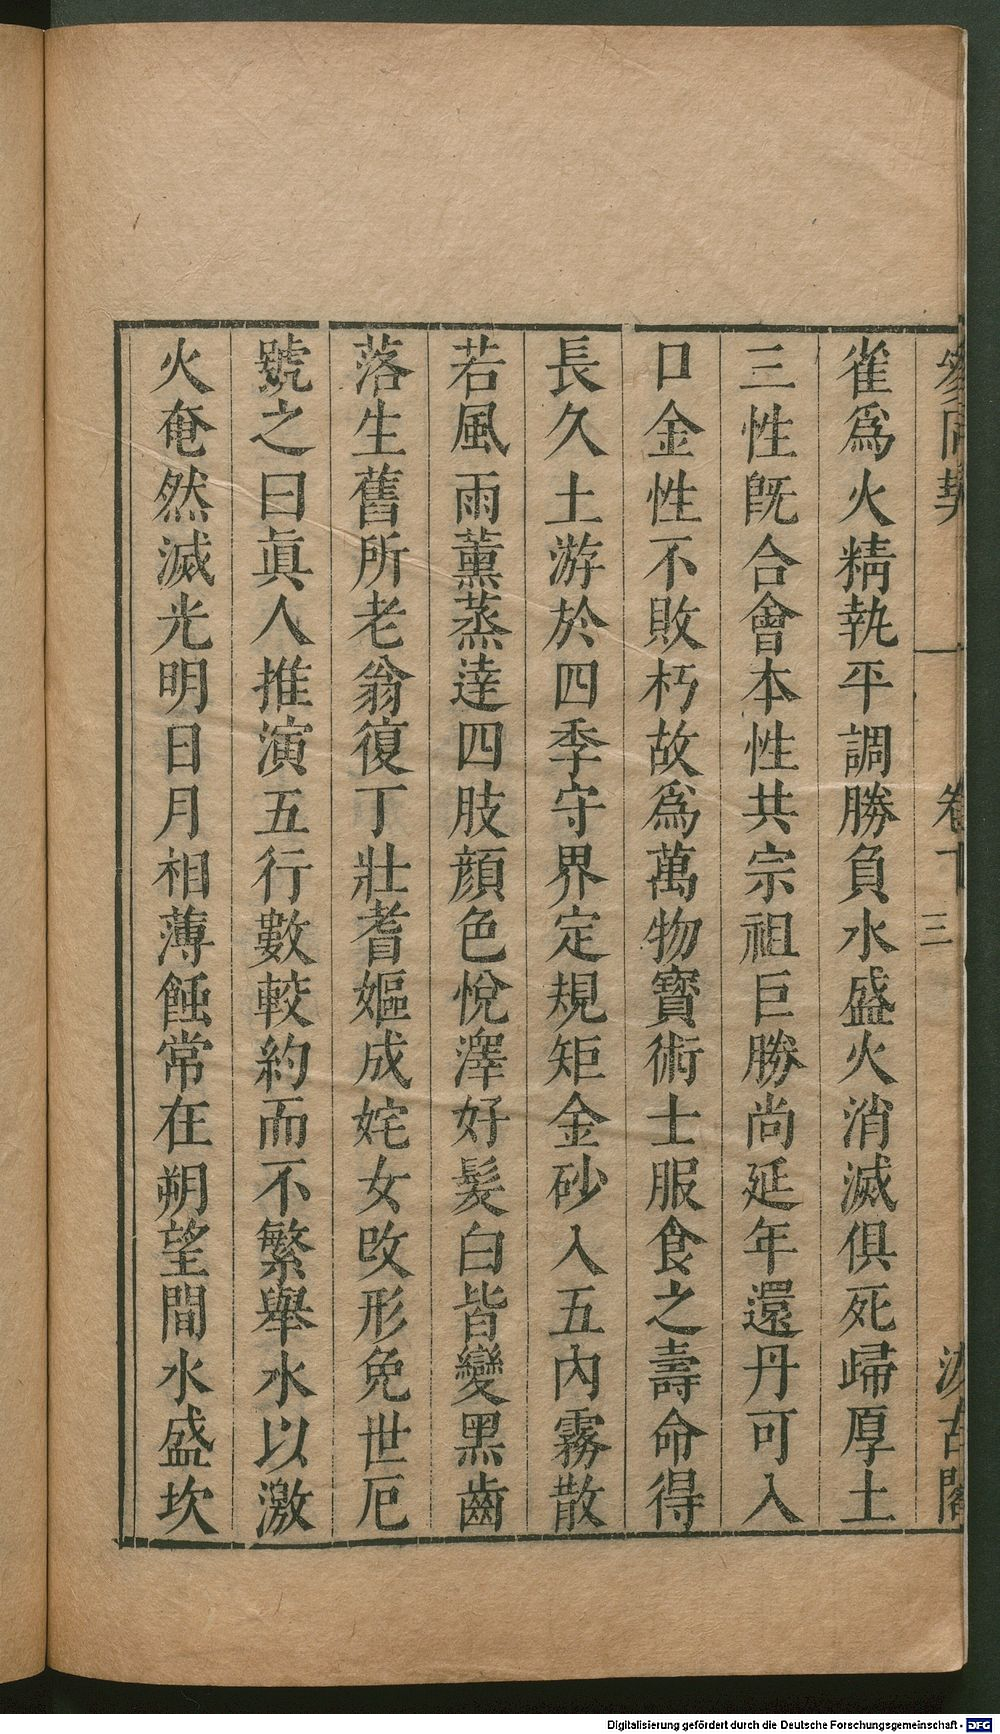 參同契 一 卷下 三 汲古閣
雀爲火精執平調勝負水盛火消滅俱死歸厚土
三性旣合會本性共宗祖巨勝尚延年還丹可入
口金性不敗朽故爲萬物寶術士服食之壽命得
長久土游於四季守界定規矩金砂入五內霧散
若風雨薰蒸達四肢顔色悅澤好髮白皆變黑齒
落生舊所老翁復丁壯耆嫗成姹女攺形免世厄
號之曰眞人推演五行數較約而不繁舉水以激
火奄然滅光明日月相薄蝕常在朔望間水盛坎
Digitalisierung gefördert durch die Deutsche Forschungsgemeinschaft - DFG